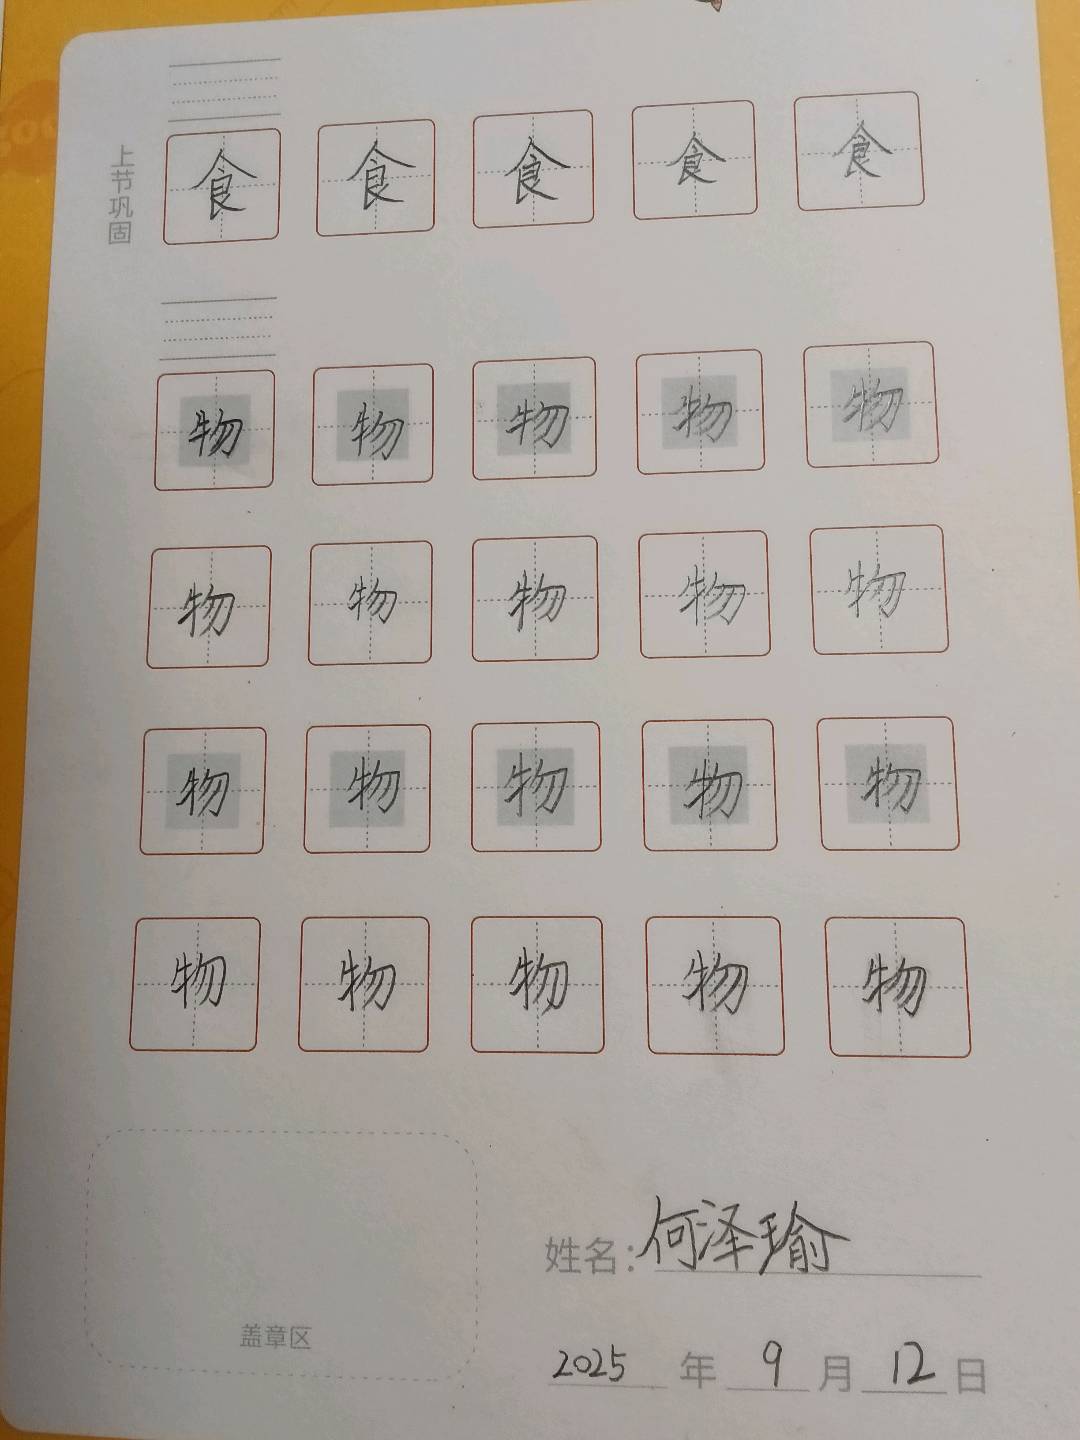 上节巩固
食 食 食 食 食
物 物 物 物 物
物 物 物 物 物
物 物 物 物 物
物 物 物 物 物
姓名:何泽瑜
盖章区
2025 年 9 月 12 日